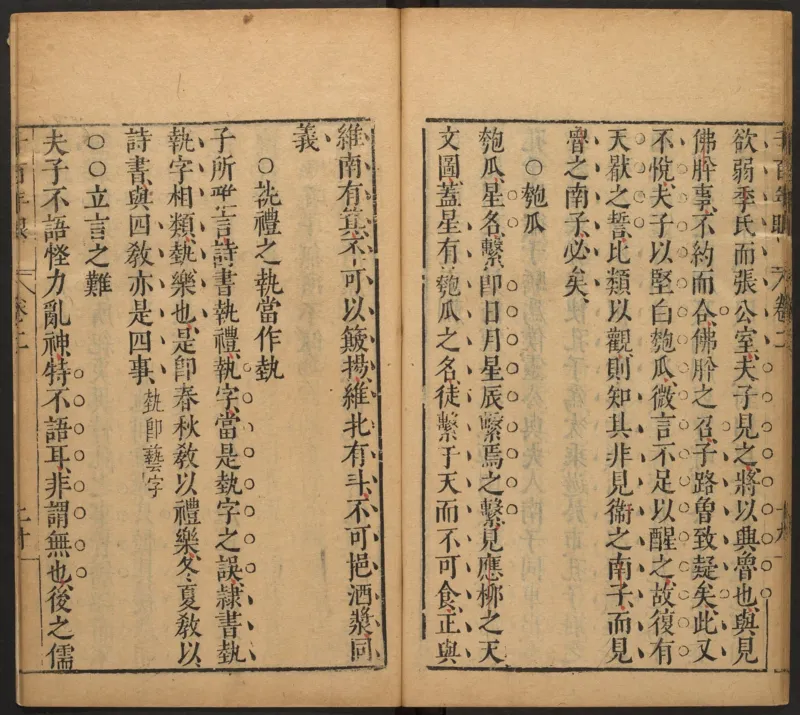 欲弱季氏而張公室夫子見之將以興魯也與見
佛肸事不約而合佛肸之召子路魯致疑矣此又
不悅夫子以堅白匏瓜微言不足以醒之故復有
天厭之誓比類以觀則知其非見衞之南子而見
魯之南子必矣
○匏瓜
匏瓜星名繫卽日月星辰繫焉之繫見應柳之天
文圖蓋星有匏瓜之名徒繫于天而不可食正與
維南有箕不可以簸揚維北有斗不可挹酒漿同
義
○執禮之執當作埶
子所雅言詩書執禮執字當是埶字之誤隷書執
埶字相類埶樂也是卽春秋敎以禮樂冬夏敎以
詩書與四敎亦是四事埶卽藝字
○○立言之難
夫子不語怪力亂神特不語耳非謂無也後之儒